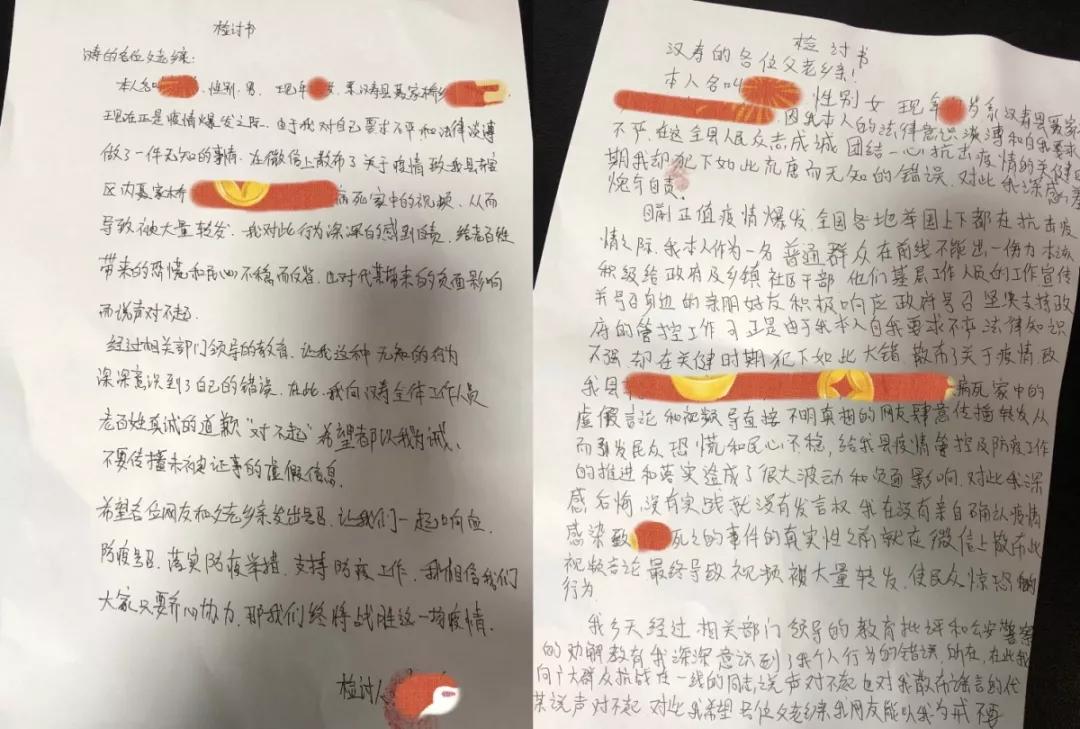 检讨书
汉寿的各位父老乡亲:
本人名叫 性别.男. 现年 汉寿县聂家桥乡
现在正是疫情爆发之际.由于我对自己要求不严和法律淡薄
做了一件无知的事情.在微信上散布了关于疫情致我县
区内聂家桥 病死家中的视频.从而
导致被大量转发.我对此行为深深的感到自责,给老百姓
带来的恐慌和民心不稳而 也对代某带来的负面影响
而说声对不起.
经过相关部门领导的教育.让我这种无知的行为
深深意识到了自己的错误.在此.我向汉寿全体工作人员
老百姓真诚的道歉"对不起"希望都以我为诫.
不要传播未被证事的虚假信息.
希望各位网友和父老乡亲发出号召.让我们一起响应
防疫号召.落实防疫举措.支持防疫工作.我相信我们
大家只要齐心协力.那我们终将战胜这一场疫情.
检讨人
检讨书
汉寿的各位父老乡亲!
本人名叫 性别女 现年 岁系汉寿县聂家
因我本人的法律意识淡薄和自我要求
不严.在这全县人民众志成城 团结一心抗击疫情的关健
期我却犯下如此荒唐而无知的错误.对此我深感羞
愧与自责.
目前正值疫情爆发.全国各地举国上下都在抗击疫
情之际.我本人作为一名普通群众在前线不能出一份力本该
积级给政府及乡镇社区干部 他们基层工作人员的工作宣传
并号召身边的亲朋好友积极响应政府号召坚决支持政
府的管控工作 可正是由于我本人自我要求不严法律知识
不强.却在关健时期犯下如此大错 散布了关于疫情致
我县 病死家中的
虚假言论和视频导直接不明真相的网友肆意传播转发从
而引发民众恐慌和民心不稳,给我县疫情管控及防疫工作
的推进和落实造成了很大波动和负面影响.对此我深
感后悔,没有实践就没有发言权 我在没有亲自确认疫情
感染致 死亡的事件的真实性之前就在微信上散布此
视频言论 最终导致视频被大量转发.使民众惊恐的
行为
我今天经过相关部门领导的教育批评和公安警察
的劝解教育我深深意识到了我个人行为的错误.所在.在此我
向广大群众抗战在一线的同志,说声对不起也对我散布谣言的代
某说声对不起 对此我希望各位父老乡亲我网友能以我为戒 不要